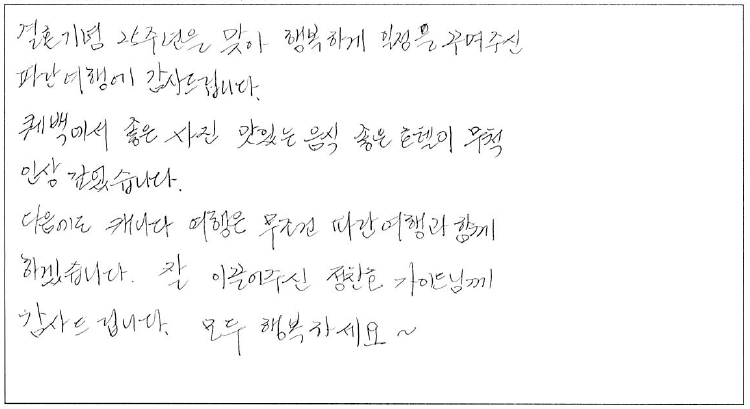 결혼기념 25주년을 맞아 행복하게 일정을 꾸며주신
파란여행에 감사드립니다.
퀘백에서 좋은 사진 맛있는 음식 좋은 호텔이 무척
인상 깊었습니다.
다음에도 캐나다 여행은 무조건 파란여행과 함께
하겠습니다. 잘 이끌어주신 정찬호 가이드님께
감사드립니다. 모두 행복하세요~